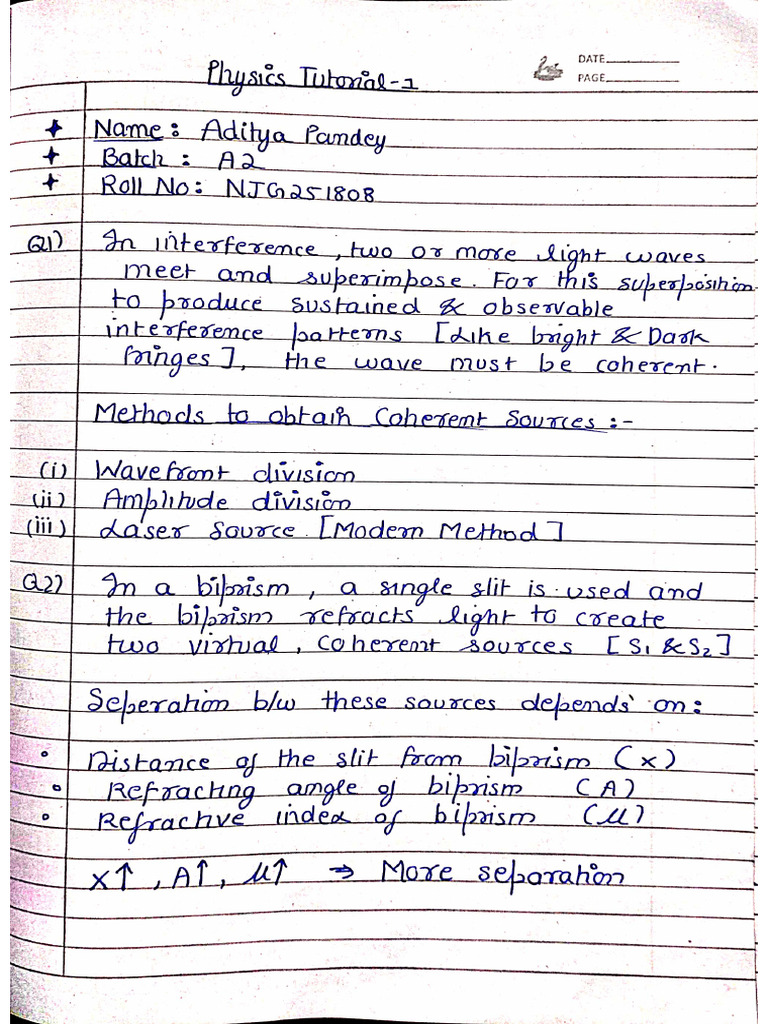 Physics Tutorial-1
DATE
PAGE
Name: Aditya Pandey
Batch : A2
Roll No: NJG251808
Q1) In interference, two or more light waves
meet and superimpose. For this superposition
to produce sustained & observable
interference patterns [Like bright & Dark
fringes], the wave must be coherent.
Methods to obtain Coherent Sources :-
(i) Wavefront division
(ii) Amplitude division
(iii) Laser Source [Modern Method]
Q2) In a biprism, a single slit is used and
the biprism refracts light to create
two virtual, coherent sources [S1 & S2]
Seperation b/w these sources depends on:
• Distance of the slit from biprism (x)
• Refracting angle of biprism (A)
• Refractive index of biprism (μ)
x↑, A↑, μ↑ → More separation